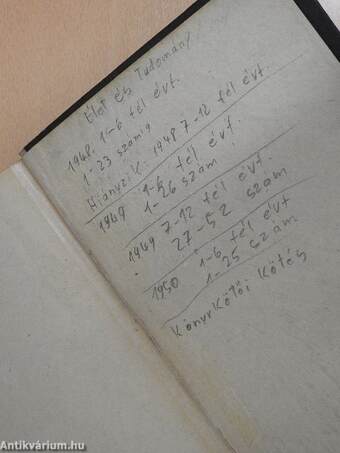 Élet és Tudomány
1948. 1-6 fél évt.
1-23 számig
Hiányzik: 1948 7-12 fél évt.
1949 1-6 fél évf.
1-26 szám
1949 7-12 fél évf.
27-52 szám
1950 1-6 fél évf
1-25 szám
Könyvkötői Kötés
Antikvárium.hu